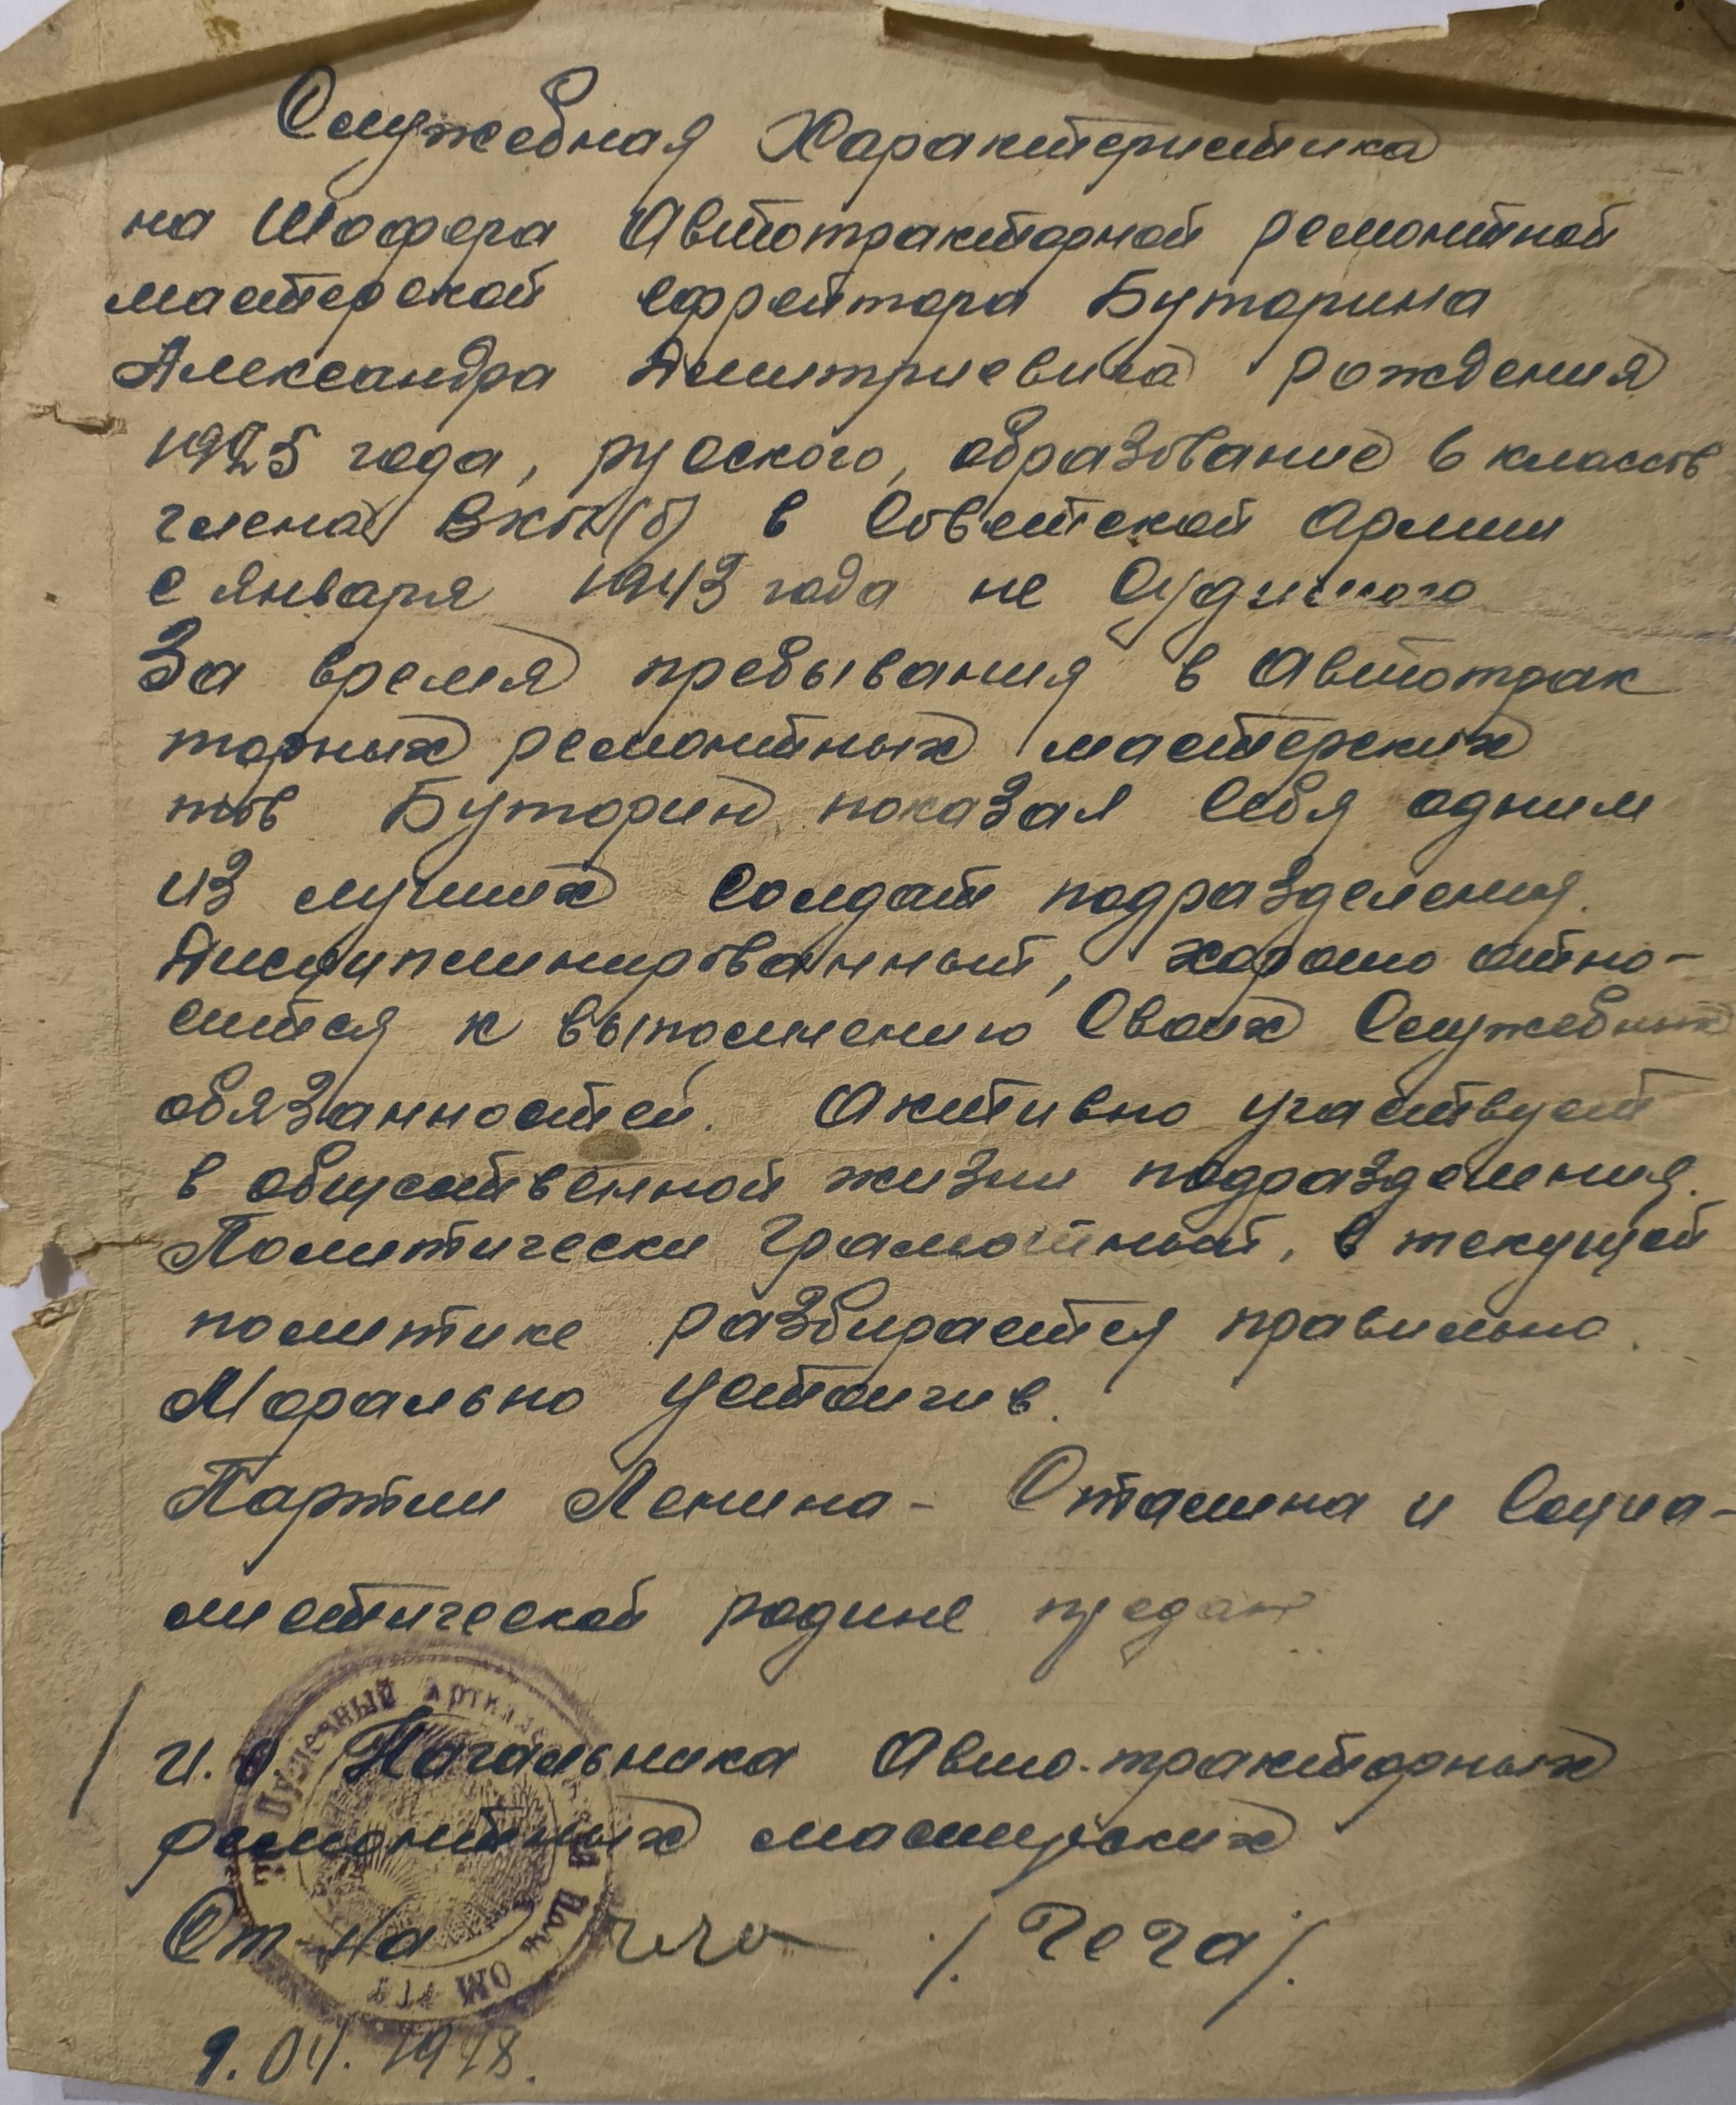 Служебная Характеристика
на Шофера Автотракторной ремонтной
мастерской ефрейтора Буторина
Александра Дмитриевича рождения
1925 года, русского, образование 6 классов
члена ВКП(б) в Советской Армии
с января 1943 года не Судимого
За время пребывания в Автотрак
торных ремонтных мастерских
тов Буторин показал Себя одним
из лучших Солдат подразделения.
Дисциплинированный, хорошо отно-
сится к выполнению Своих Служебных
обязанностей. Активно участвует
в общественной жизни подразделения.
Политически Грамотный, в текущей
политике разбирается правильно.
Морально устойчив.
Партии Ленина - Сталина и Социа-
листической родине предан
И.О. Начальника Авто-тракторных
ремонтных мастерских
Ст-на /Чеча/.
9.04.1948.